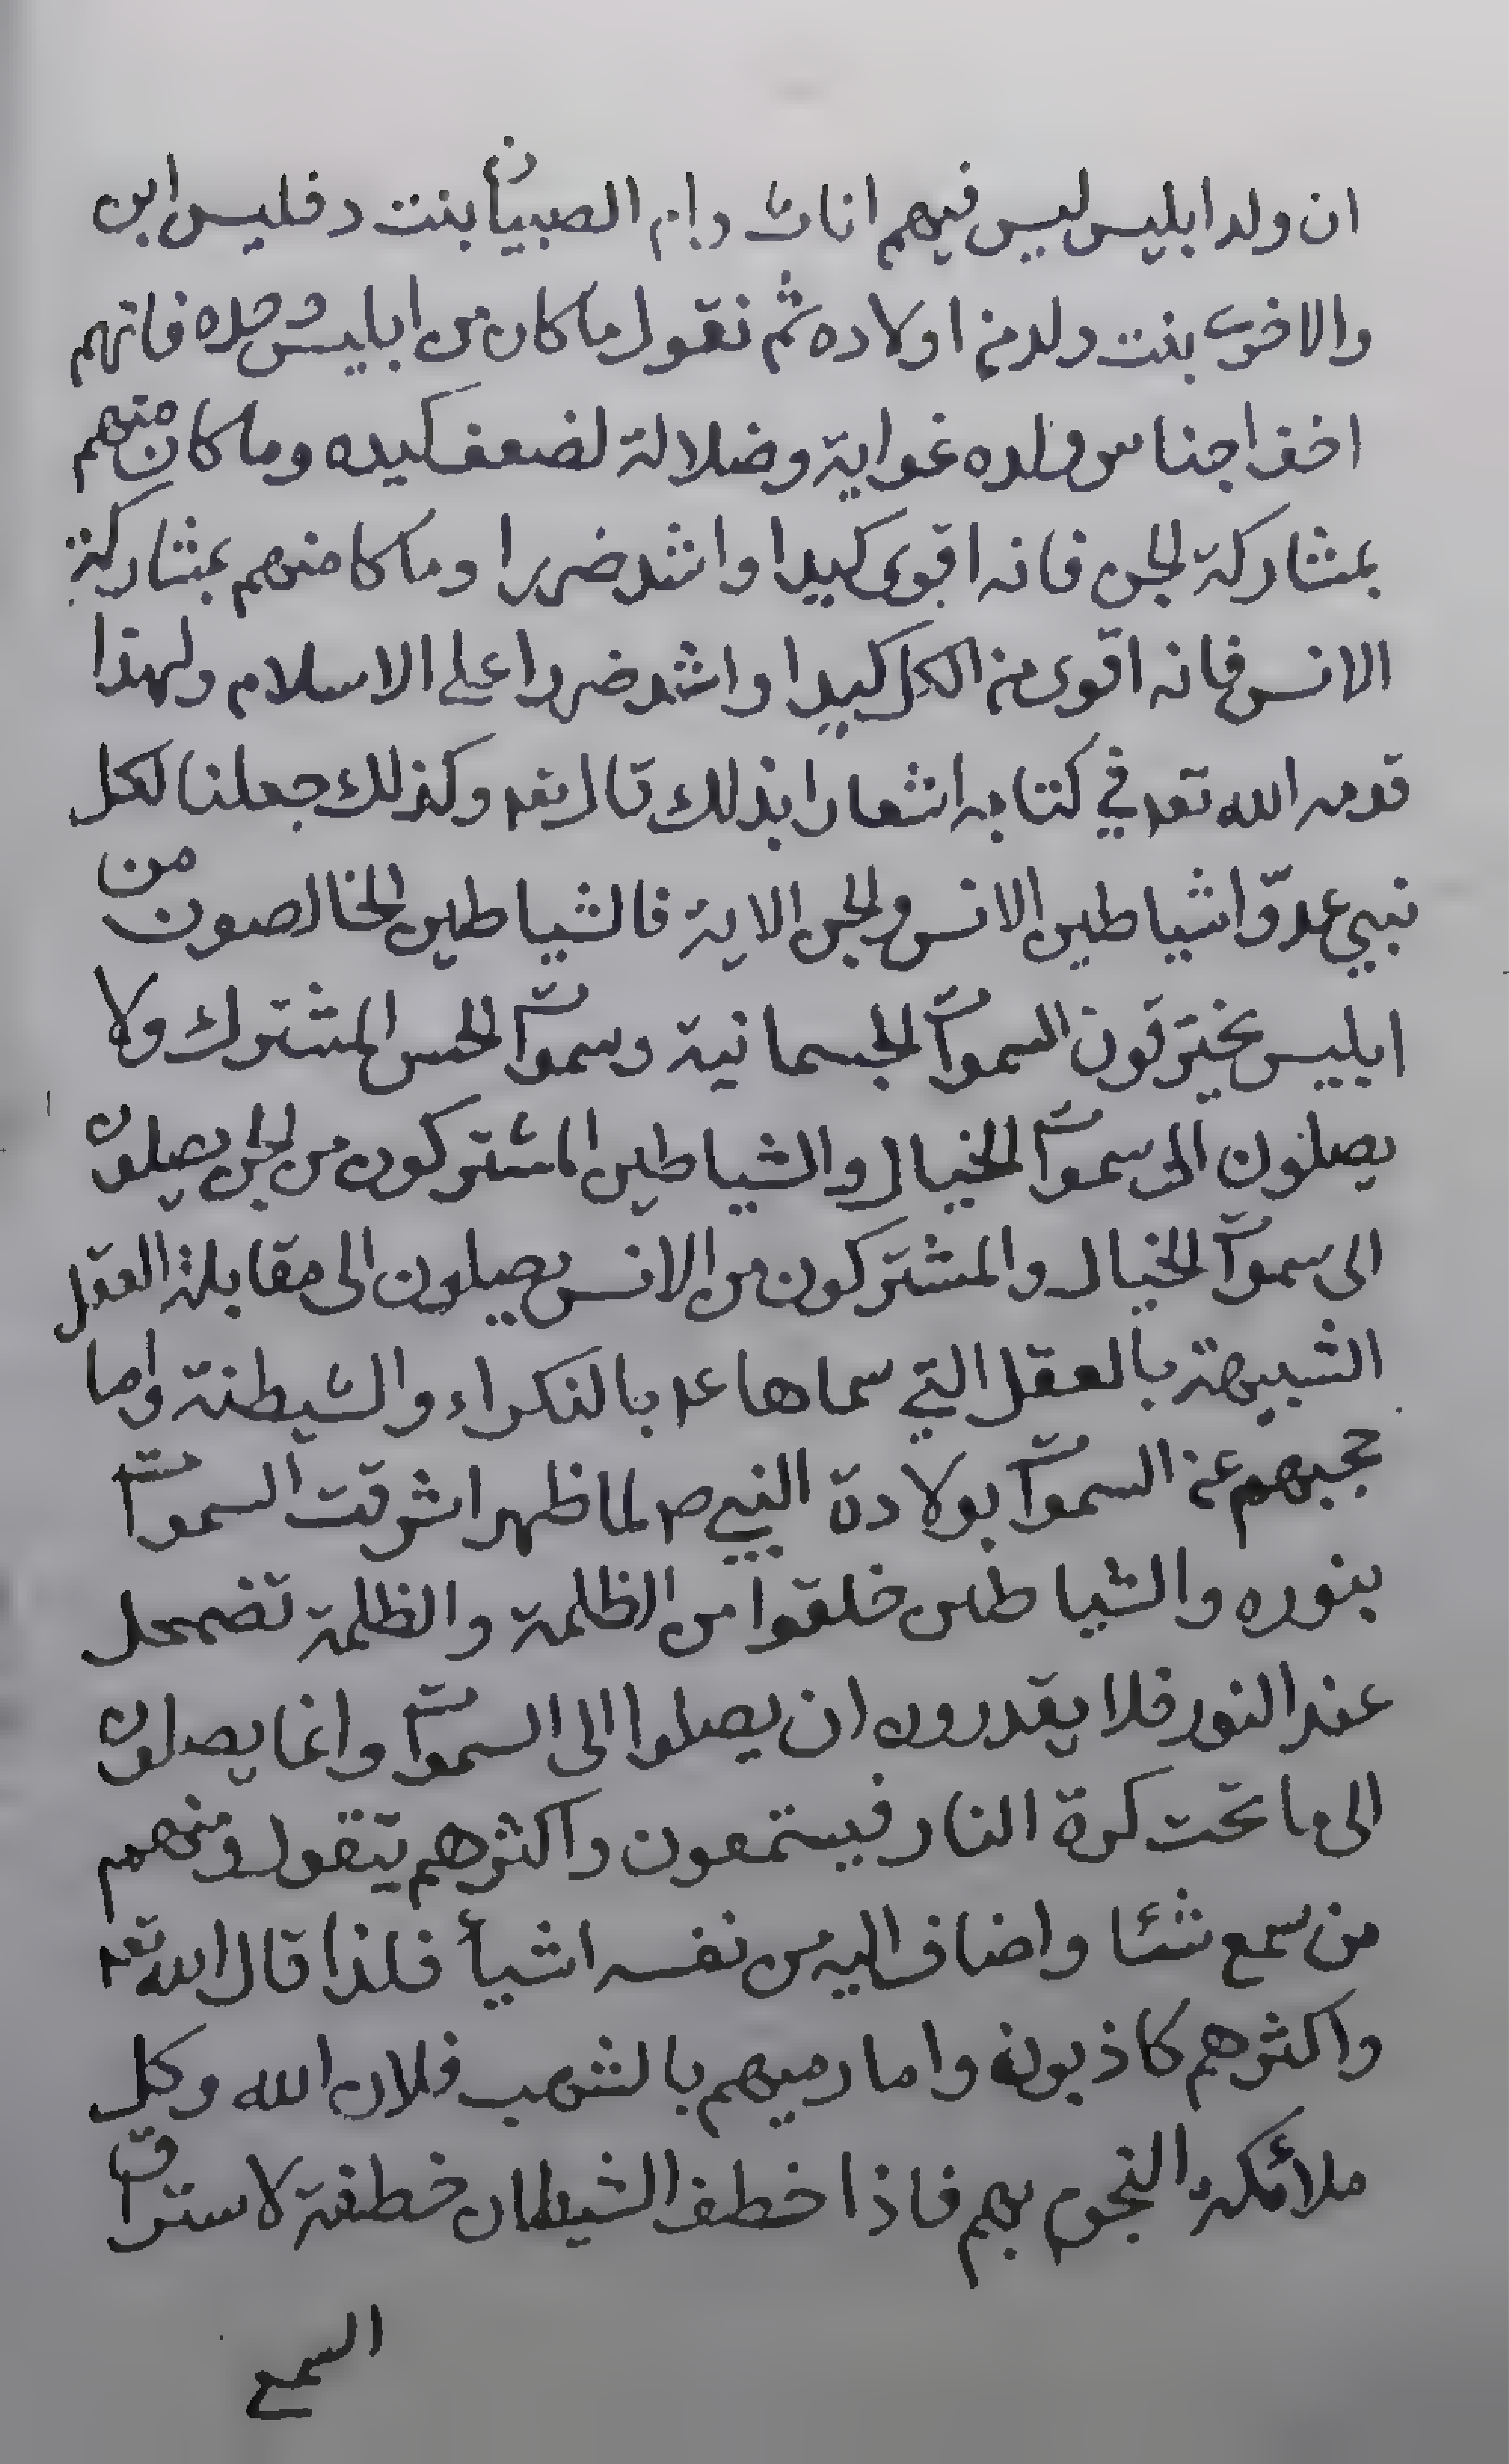 ان ولد ابليس ليس فيهم اناث وام الصبيان بنت دفليس ابن
والاخرى بنت ولد من اولاده ثم نقول ما كان من ابليس وحده فانهم
اخف اجناس ولده غواية وضلالة لضعف كيده وما كان منهم
بمشاركة الجن فانه اقوى كيدا واشد ضررا وما كا منهم بمشاركة
الانس فانه اقوى من الكل كيدا واشد ضررا على الاسلام ولهذا
قدمه الله تعه في كتابه اشعارا بذلك قال تعه وكذلك جعلنا لكل
نبي عدوّا شياطين الانس والجن الاية فالشياطين الخالصون من
ابليس يخترقون السموآت الجسمانية وسموآت الحس المشترك ولا
يصلون الى سموآت الخيال والشياطين المشتركون من الجن يصلون
الى سموآت الخيال والمشتركون من الانس يصلون الى مقابلة العقل
الشبيهة بالعقل التي سماها عه بالنكراء والشيطنة واما
حجبهم عن السموآت بولادة النبي ص لما ظهر اشرقت السموآت
بنوره والشياطين خلقوا من الظلمة والظلمة تضمحل
عند النور فلا يقدرون ان يصلوا الى السموآت وانما يصلون
الى ما تحت كرة النار فيستمعون واكثرهم يتقول ومنهم
من سمع شئا واضاف اليه من نفسه اشيأ فلذا قال الله تعه
واكثرهم كاذبون واما رميهم بالشهب فلان الله وكل
ملائكة النجوم بهم فاذا خطف الشيطان خطفة لاستراق
السمع